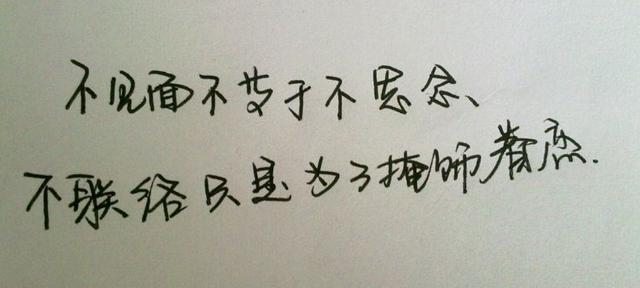 不见面不等于不思念、
不联络只是为了掩饰眷恋.